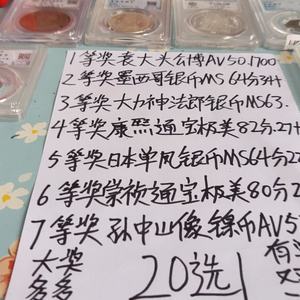 1等奖袁大头公博AV50.1700
2等奖墨西哥银币MS64分34
3等奖大力神法郎银币MS63.
4等奖康熙通宝极美82分.27
5等奖日本单凤银币MS64分2
6等奖崇祯通宝极美80分2
7等奖孙中山像镍币AV5
大奖
多多
20选1
有